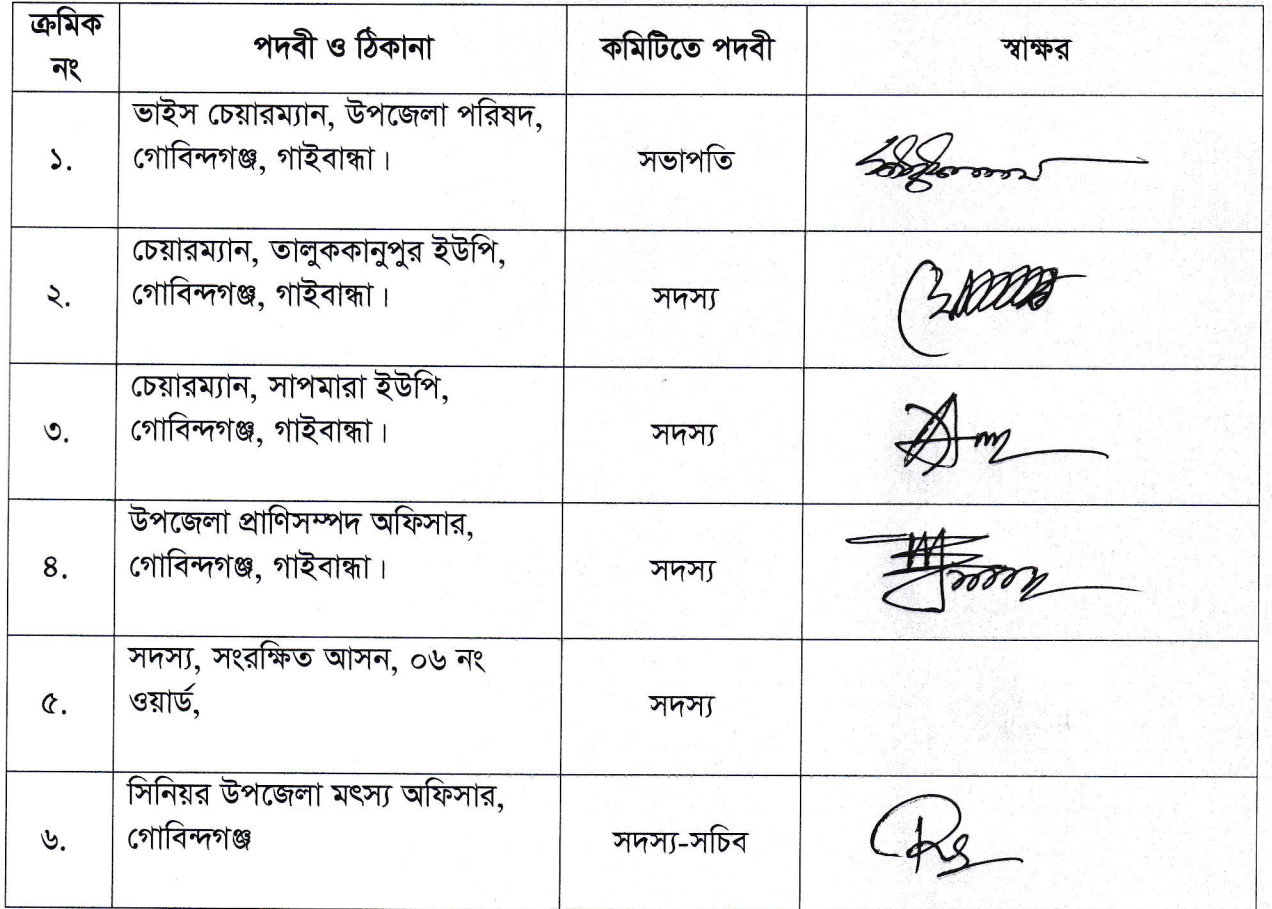 ক্রমিক নং পদবী ও ঠিকানা কমিটিতে পদবী স্বাক্ষর
ভাইস চেয়ারম্যান, উপজেলা পরিষদ,
১. গোবিন্দগঞ্জ, গাইবান্ধা। সভাপতি
চেয়ারম্যান, তালুককানুপুর ইউপি,
২. গোবিন্দগঞ্জ, গাইবান্ধা। সদস্য
চেয়ারম্যান, সাপমারা ইউপি,
৩. গোবিন্দগঞ্জ, গাইবান্ধা। সদস্য
উপজেলা প্রাণিসম্পদ অফিসার,
৪. গোবিন্দগঞ্জ, গাইবান্ধা। সদস্য
সদস্য, সংরক্ষিত আসন, ০৬ নং
৫. ওয়ার্ড, সদস্য
সিনিয়র উপজেলা মৎস্য অফিসার,
৬. গোবিন্দগঞ্জ সদস্য-সচিব